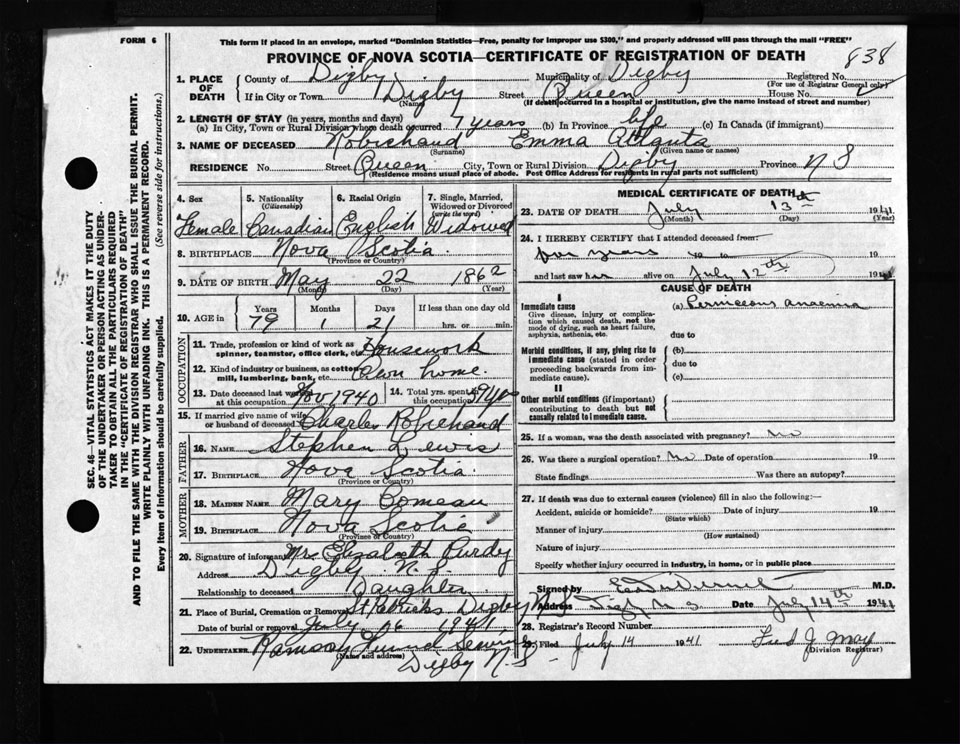 FORM 6
This form if placed in an envelope, marked "Dominion Statistics—Free, penalty for improper use $300," and properly addressed will pass through the mail "FREE"
PROVINCE OF NOVA SCOTIA—CERTIFICATE OF REGISTRATION OF DEATH
838
1. PLACE OF DEATH
County of Digby Municipality of Digby Registered No.
(For use of Registrar General only)
If in City or Town Digby Street Queen House No.
(Name) (If death occurred in a hospital or institution, give the name instead of street and number)
2. LENGTH OF STAY (in years, months and days)
(a) In City, Town or Rural Division where death occurred 7 years (b) In Province life (c) In Canada (if immigrant)
3. NAME OF DECEASED Robichaud Emma Atlanta
(Surname) (Given name or names)
RESIDENCE No. Street Queen City, Town or Rural Division Digby Province N S
(Residence means usual place of abode. Post Office Address for residents in rural parts not sufficient)
4. Sex Female
5. Nationality (Citizenship) Canadian
6. Racial Origin English
7. Single, Married, Widowed or Divorced (write the word) Widowed
8. BIRTHPLACE Nova Scotia
(Province or Country)
9. DATE OF BIRTH May 22 1862
(Month) (Day) (Year)
10. AGE in Years Months Days If less than one day
79 1 21 hrs. or min.
OCCUPATION
11. Trade, profession or kind of work as spinner, teamster, office clerk, etc. Housework
12. Kind of industry or business, as cotton mill, lumbering, bank, etc. Own home
13. Date deceased last worked at this occupation Nov 1940
14. Total yrs. spent in this occupation 59 yrs
15. If married give name of wife or husband of deceased Charles Robichaud
FATHER
16. NAME Stephen Lewis
17. BIRTHPLACE Nova Scotia
(Province or Country)
MOTHER
18. MAIDEN NAME Mary Comeau
19. BIRTHPLACE Nova Scotia
(Province or Country)
20. Signature of informant Mrs Elizabeth Purdy
Address Digby N.S.
Relationship to deceased Daughter
21. Place of Burial, Cremation or Removal St Patricks Digby N.S.
Date of burial or removal July 16 1941
22. UNDERTAKER Ramsay Funeral Service
(Name and address)
Digby N.S.
MEDICAL CERTIFICATE OF DEATH
23. DATE OF DEATH July 13th 1941
(Month) (Day) (Year)
24. I HEREBY CERTIFY that I attended deceased from
for years to 19
and last saw her alive on July 12th 1941
CAUSE OF DEATH
I
Immediate cause (a) Pernicious anaemia
Give disease, injury or complication which caused death, not the mode of dying, such as heart failure, asphyxia, asthenia, etc.
due to
Morbid conditions, if any, giving rise to immediate cause (stated in order proceeding backwards from immediate cause).
(b)
due to
(c)
II
Other morbid conditions (if important) contributing to death but not causally related to immediate cause.
25. If a woman, was the death associated with pregnancy? No
26. Was there a surgical operation? No Date of operation 19
State findings Was there an autopsy?
27. If death was due to external causes (violence) fill in also the following:—
Accident, suicide or homicide? Date of injury 19
(State which)
Manner of injury
(How sustained)
Nature of injury
Specify whether injury occurred in industry, in home, or in public place
Signed by M.D.
Address Digby N.S. Date July 14th 1941
28. Registrar's Record Number
29. Filed July 14 1941 Fred J May
(Division Registrar)
SEC. 46—VITAL STATISTICS ACT MAKES IT THE DUTY
OF THE UNDERTAKER OR PERSON ACTING AS UNDER-
TAKER TO OBTAIN ALL THE PARTICULARS REQUIRED
IN THE "CERTIFICATE OF REGISTRATION OF DEATH"
AND TO FILE THE SAME WITH THE DIVISION REGISTRAR WHO SHALL ISSUE THE BURIAL PERMIT.
WRITE PLAINLY WITH UNFADING INK. THIS IS A PERMANENT RECORD.
Every item of information should be carefully supplied. (See reverse side for instructions.)